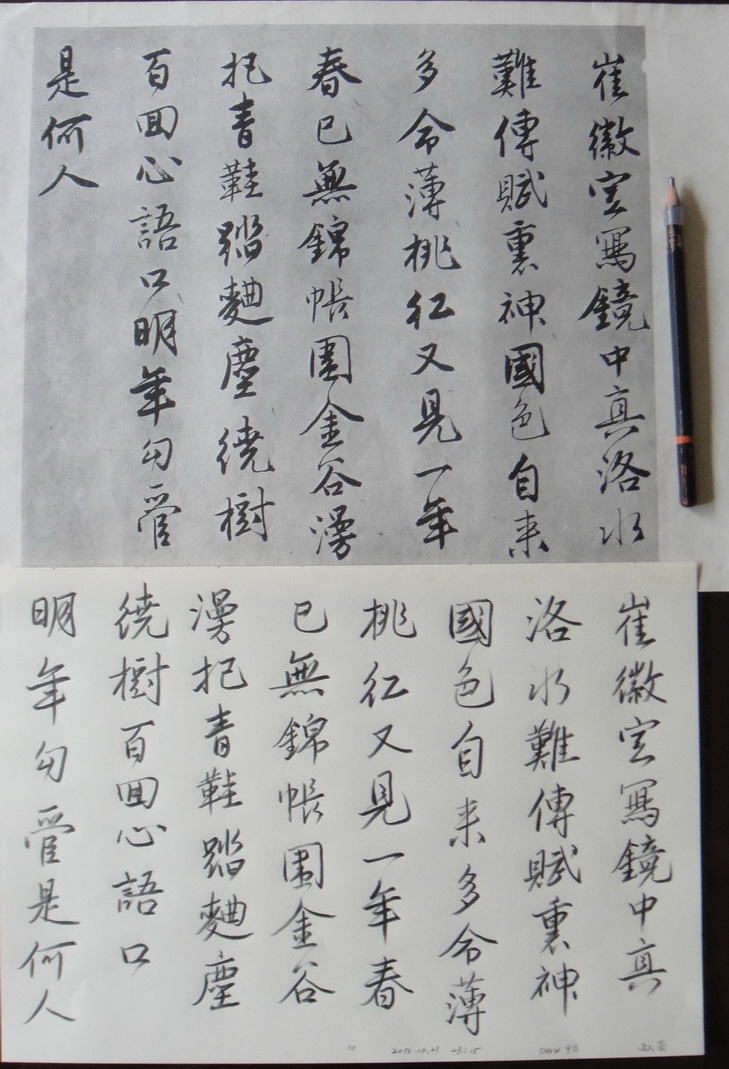 崔徽空寫鏡中真洛水
難傳賦裏神國色自来
多命薄桃红又見一年
春已無錦帳圍金谷漫
把青鞋踏麴塵繞樹
百回心語口明年勾管
是何人
崔徽空寫鏡中真
洛水難傳賦裏神
國色自来多命薄
桃红又見一年春
已無錦帳圍金谷
漫把青鞋踏麴塵
繞樹百回心語口
明年勾管是何人